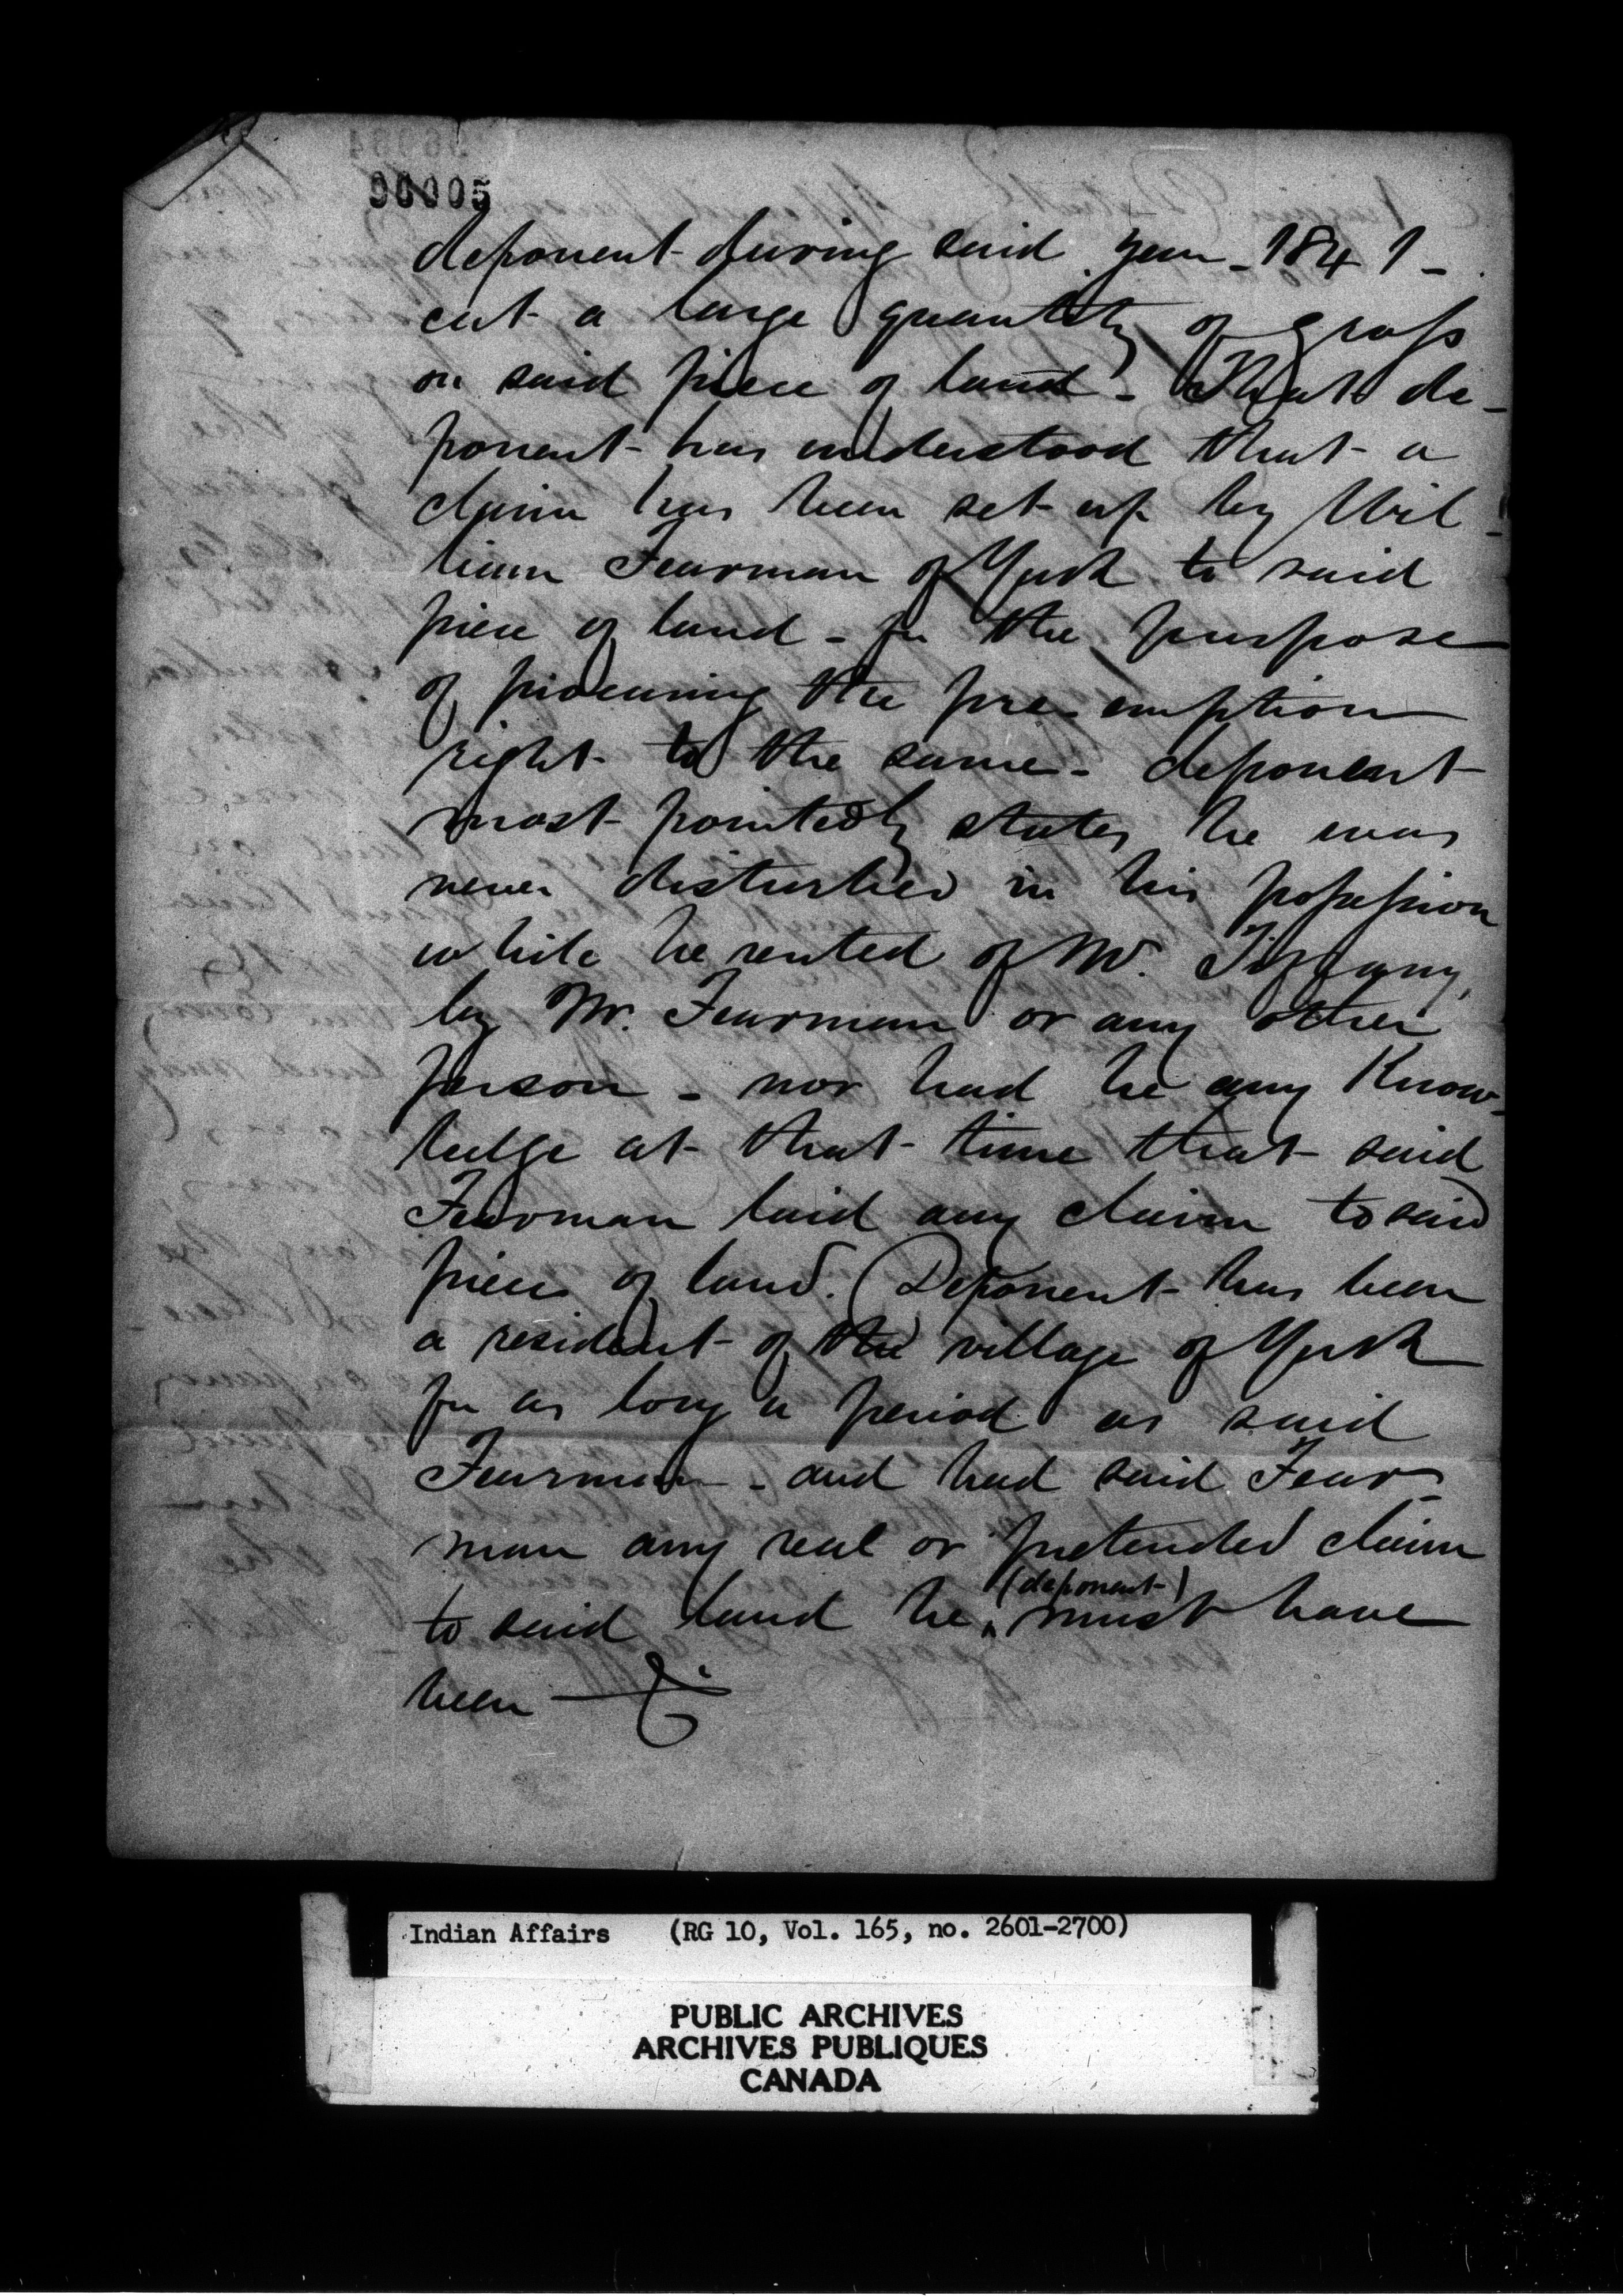 deponent during said year - 1841 -
cut a large quantity of grass
on said piece of land - That de-
ponent has understood that a
claim has been set up by Wil-
liam Fearman of York to said
piece of land - for the purpose
of procuring the pre-emption
right to the same - deponent
most pointedly states he was
never disturbed in his possession
while he rented of Mr. Tiffany,
by Mr. Fearman or any other
person - nor had he any Know-
ledge at that time that said
Fearman laid any claim to said
piece of land. Deponent has been
a resident of the village of York
for as long a period as said
Fearman - and had said Fear-
man any real or pretended claim
(deponent)
to said land he ‸ must have
been
Indian Affairs (RG 10, Vol. 165, no. 2601-2700)
PUBLIC ARCHIVES
ARCHIVES PUBLIQUES
CANADA